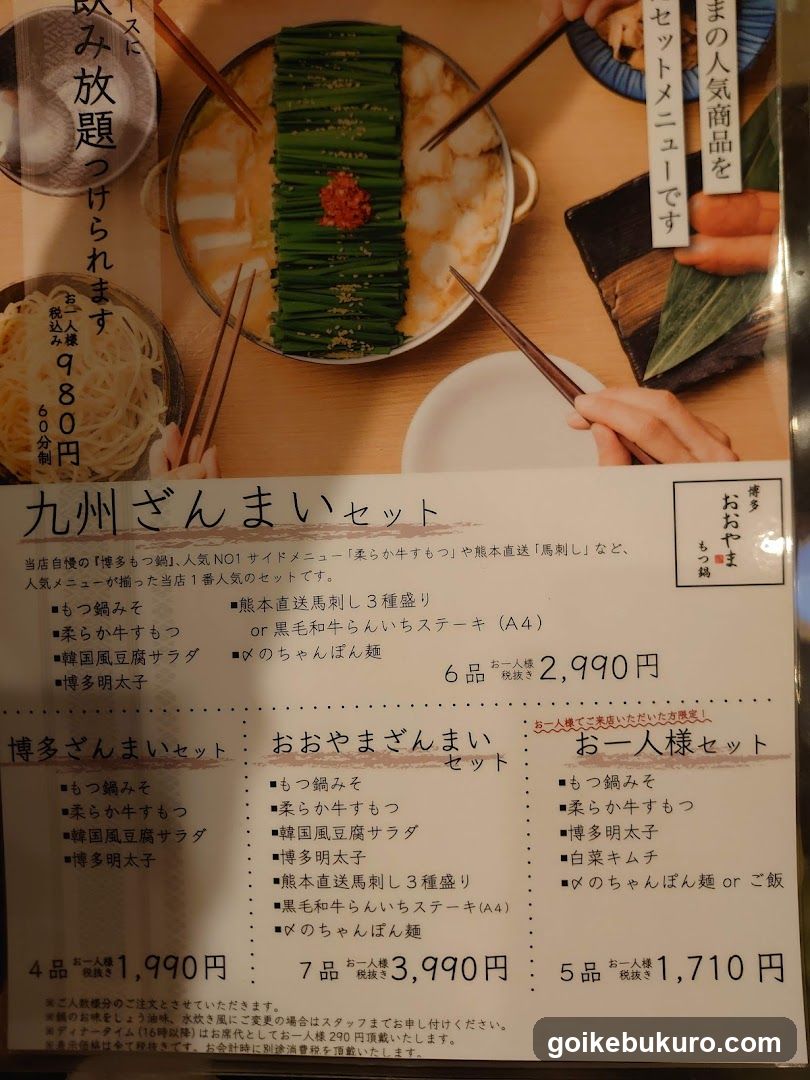 飲み放題つけられます
お一人様
税込み
980円
60分制
まの人気商品を
セットメニューです
九州ざんまいセット
博多
おおやま
もつ鍋
当店自慢の『博多もつ鍋』、人気NO1サイドメニュー「柔らか牛すもつ」や熊本直送「馬刺し」など、
人気メニューが揃った当店1番人気のセットです。
■もつ鍋みそ
■柔らか牛すもつ
■韓国風豆腐サラダ
■博多明太子
■熊本直送馬刺し3種盛り
or 黒毛和牛らんいちステーキ（A4）
■〆のちゃんぽん麺
6品 お一人様 税抜き 2,990円
博多ざんまいセット
■もつ鍋みそ
■柔らか牛すもつ
■韓国風豆腐サラダ
■博多明太子
4品 お一人様 税抜き 1,990円
おおやまざんまい
セット
■もつ鍋みそ
■柔らか牛すもつ
■韓国風豆腐サラダ
■博多明太子
■熊本直送馬刺し3種盛り
■黒毛和牛らんいちステーキ(A4)
■〆のちゃんぽん麺
7品 お一人様 税抜き 3,990円
お一人様でご来店いただいた方限定！
お一人様セット
■もつ鍋みそ
■柔らか牛すもつ
■博多明太子
■白菜キムチ
■〆のちゃんぽん麺 or ご飯
5品 お一人様 税抜き 1,710円
※ご人数様分のご注文とさせていただきます。
※鍋のお味をしょう油味、水炊き風にご変更の場合はスタッフまでお申し付けください。
※ディナータイム(16時以降)はお席代としてお一人様290円頂戴いたします。
※表示価格は全て税抜きです。お会計時に別途消費税を頂戴いたします。
goikebukuro.com